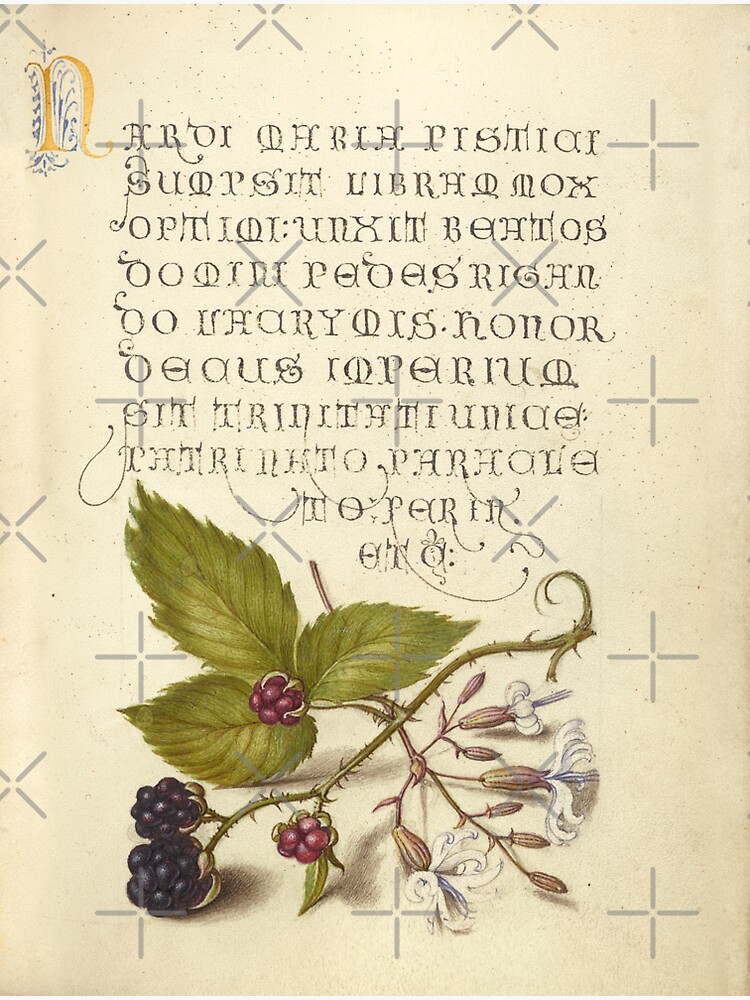 NARDI MARIA PISTICI
SUMPSIT LIBRAM MOX
OPTIMI: UNXIT BEATOS
DOMINI PEDES RIGAN
DO LACRYMIS. HONOR
DECUS IMPERIUM
SIT TRINITATI UNICE:
PATRI NATO PARACLE
TO: PER IN.
ET C: